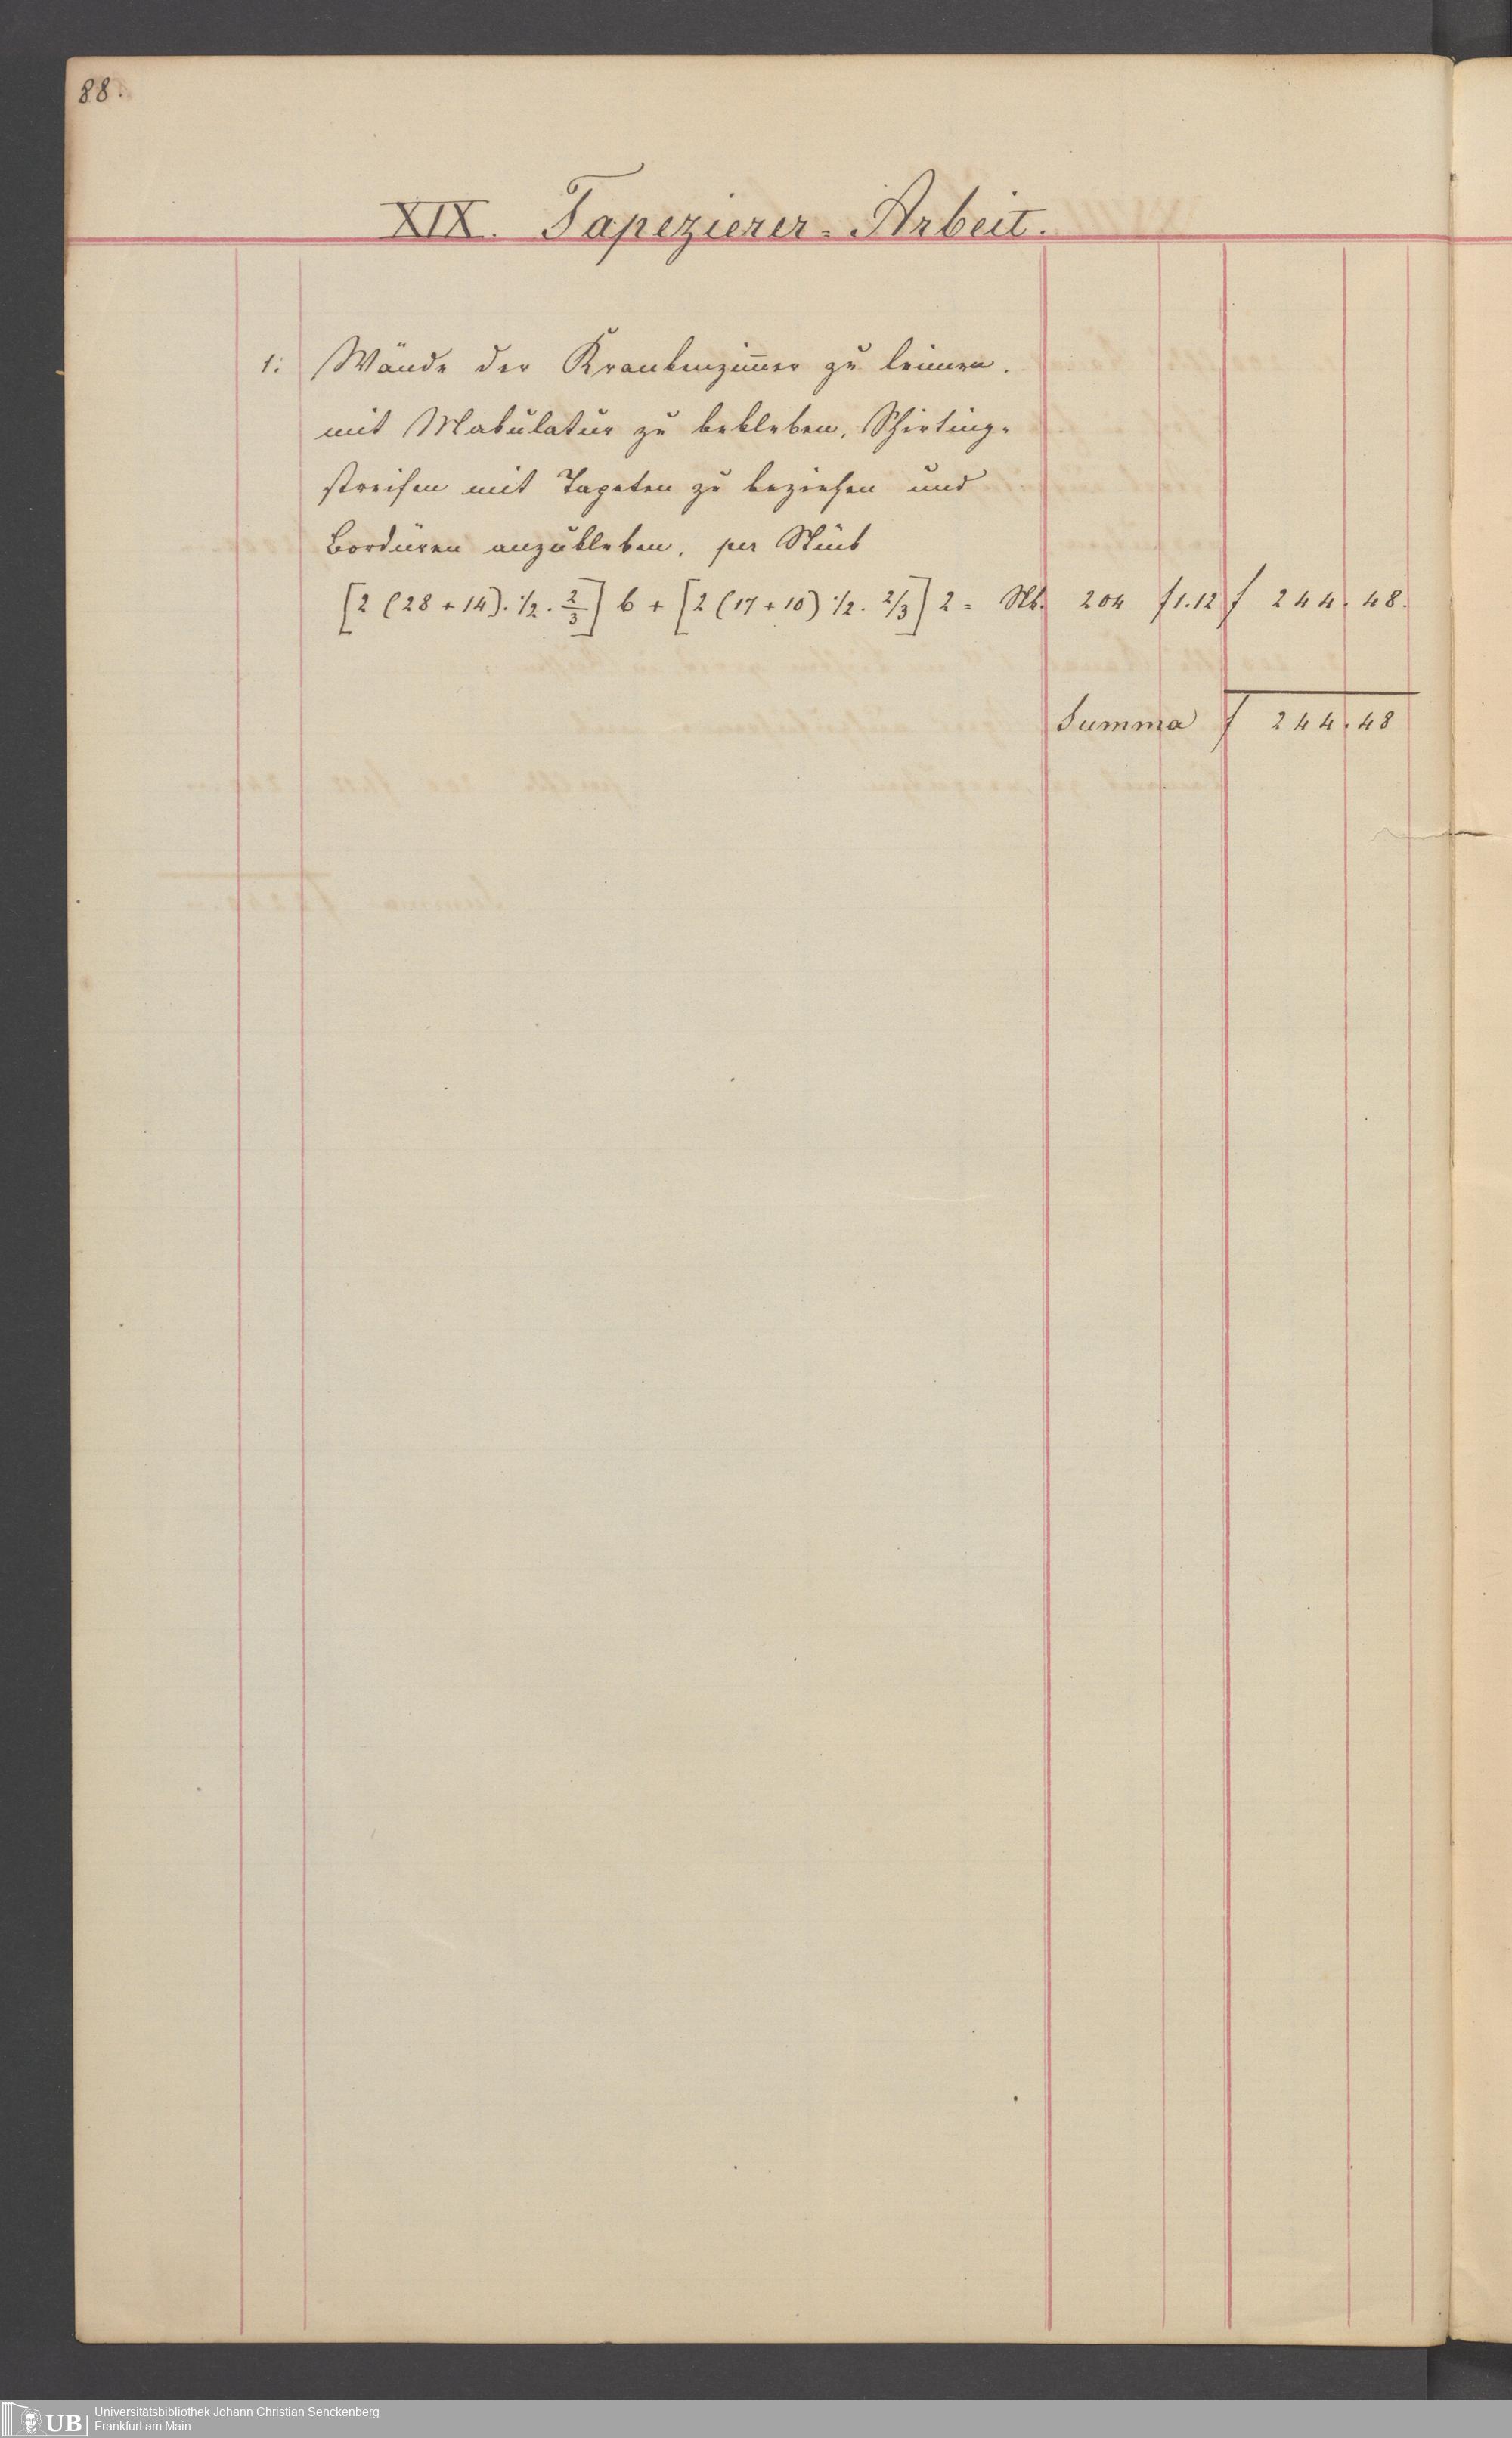 88.
XIX. Tapezierer-Arbeit.
1. Wände der Krankenzim̅er zu leimen,
mit Makulatur zu bekleben, Schirting-
streifen mit Tapeten zu beziehen und
Bordüren anzukleben, per Stück
[2 (28 + 14). 1/2. 2/3] 6 + [2 (17 + 10) 1/2. 2/3] 2 = Stk. 204 f 1.12 f 244. 48.
Summa f 244. 48
UB
Universitätsbibliothek Johann Christian Senckenberg
Frankfurt am Main